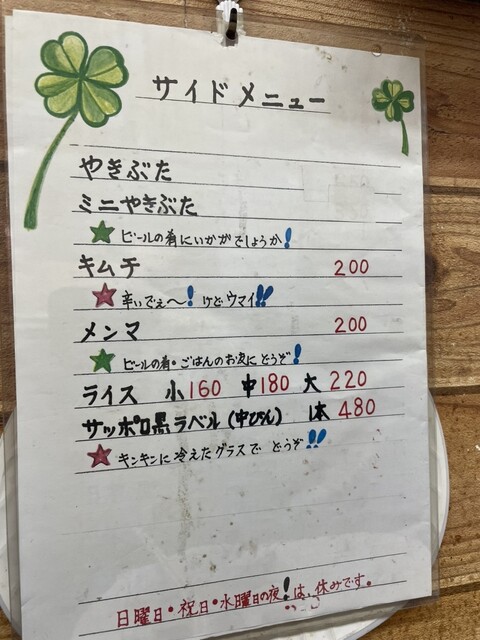 サイドメニュー
やきぶた
ミニやきぶた
ビールの肴にいかがでしょうか!
キムチ 200
辛いでぇ〜! けどウマイ!!
メンマ 200
ビールの肴・ごはんのお友にどうぞ!
ライス 小160 中180 大220
サッポロ黒ラベル(中びん) 1本480
キンキンに冷えたグラスでどうぞ!!
日曜日・祝日・水曜日の夜!は、休みです。